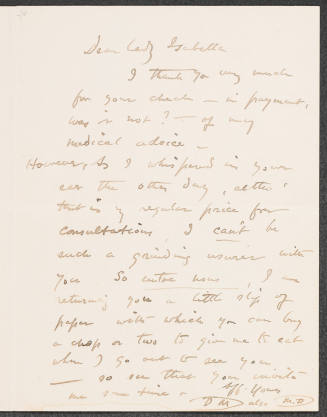 Dear Lady Isabella
I thank you very much
for your check — in payment,
was it not? — of my
medical advice —
However, As I whispered in your
ear the other day, altho'
that is my regular price for
consultations, I can't be
such a grinding usurer with
you So entre nous, I am
returning you a little slip of
paper with which you can buy
a chop or two to give me to eat
when I go out to see you
— so see that you invite
me some time —
Yours
M.D.